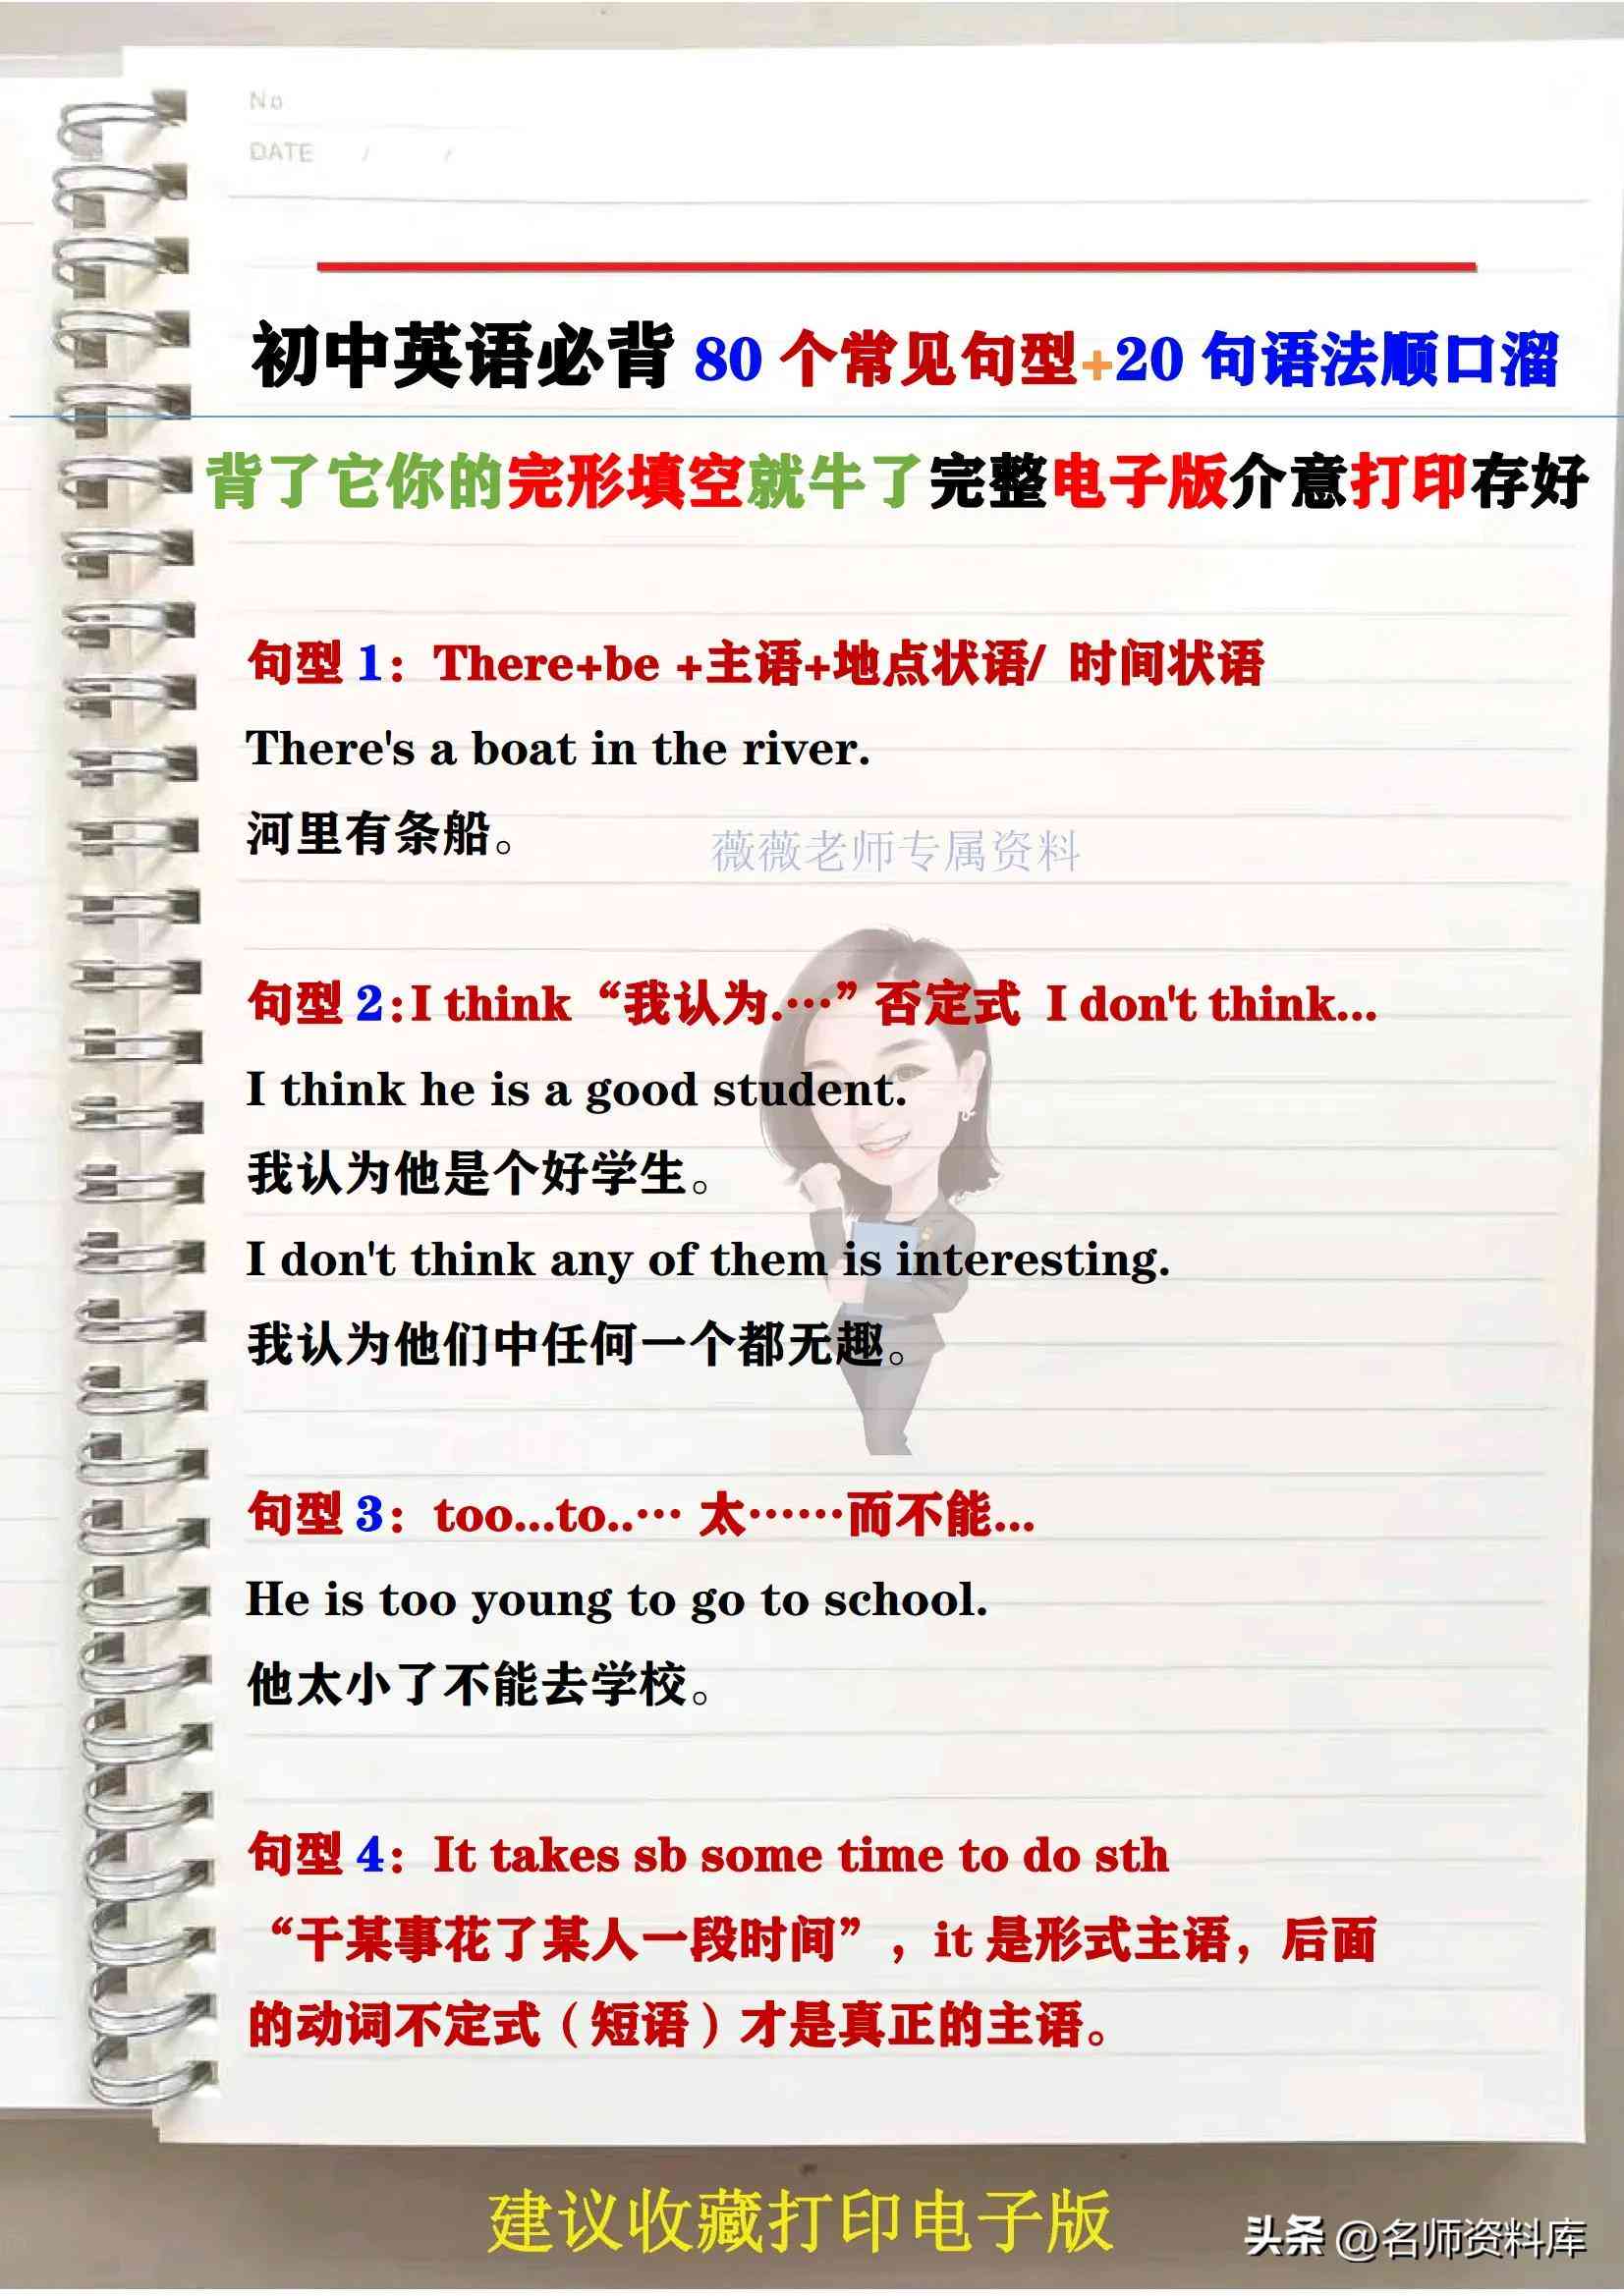 No
DATE / /
初中英语必背 80 个常见句型+20 句语法顺口溜
背了它你的完形填空就牛了完整电子版介意打印存好
句型 1：There+be +主语+地点状语/ 时间状语
There's a boat in the river.
河里有条船。
薇薇老师专属资料
句型 2:I think“我认为.…”否定式 I don't think...
I think he is a good student.
我认为他是个好学生。
I don't think any of them is interesting.
我认为他们中任何一个都无趣。
句型 3：too...to..… 太……而不能...
He is too young to go to school.
他太小了不能去学校。
句型 4：It takes sb some time to do sth
“干某事花了某人一段时间”，it 是形式主语，后面
的动词不定式（短语）才是真正的主语。
建议收藏打印电子版
头条 @名师资料库